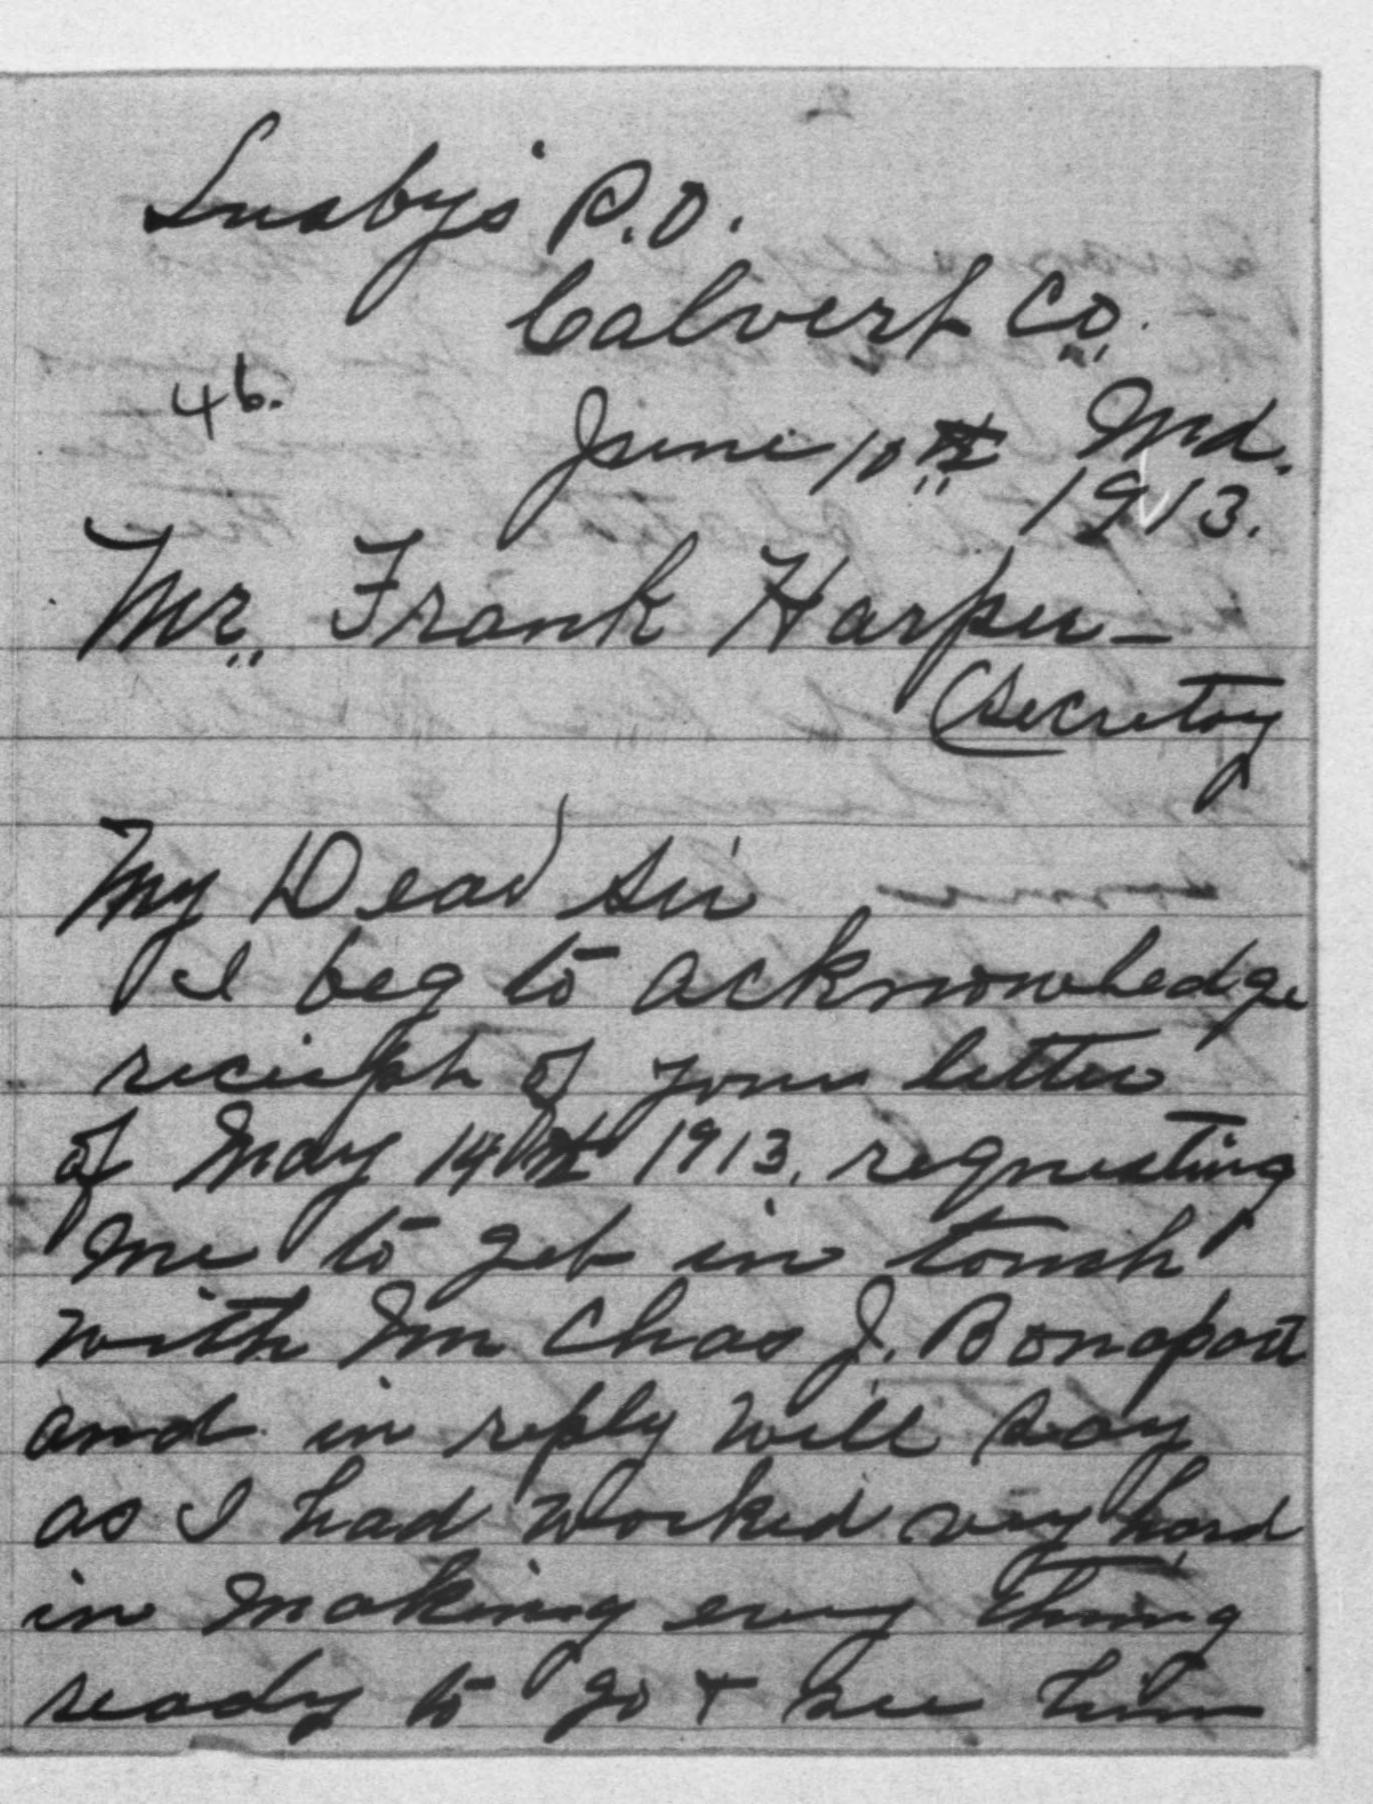 Lusby's P.O.
Calvert Co.
46.
June 10th Md.
1913.
Mr. Frank Harper—
(Secretoy
My Dear Sir
I beg to acknowledge
reciept of your letter
of May 14th 1913, requesting
me to get in touch
with Mr Chas J. Bonapart
and in reply will say
as I had worked very hard
in making every thing
ready to go + see him